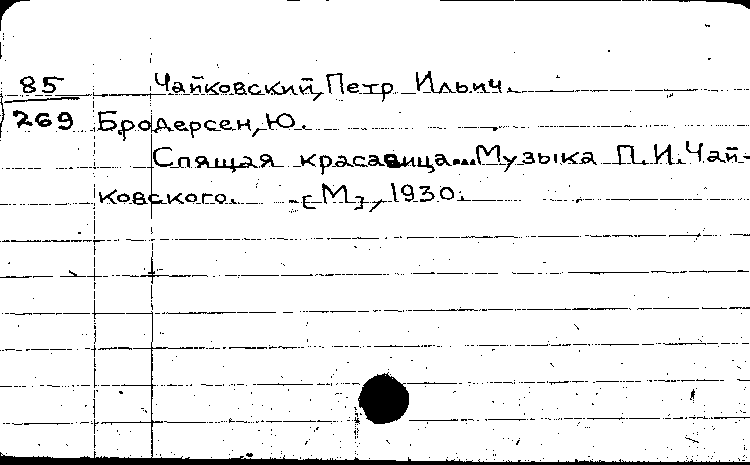 85 Чайковский, Петр Ильич.
269 Бродерсен, Ю.
Спящая красавица... Музыка П.И.Чай-
ковского. - [М], 1930.